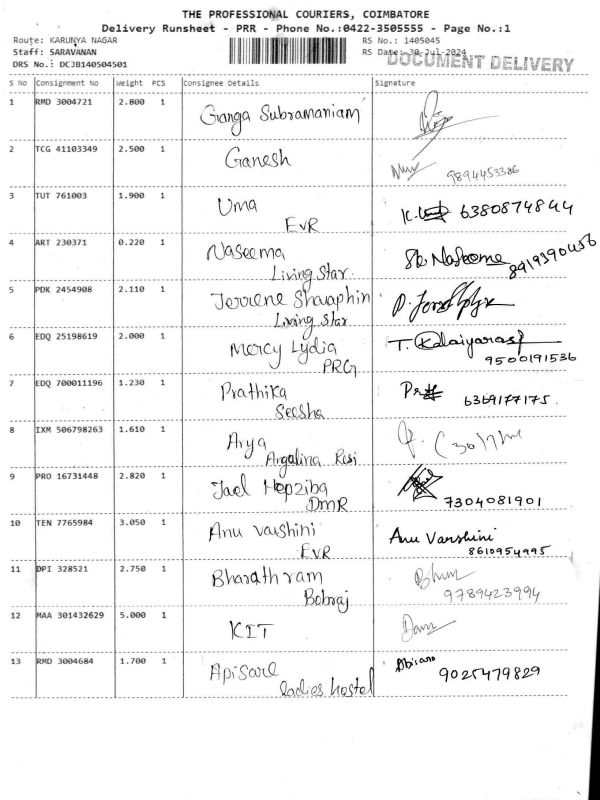 THE PROFESSIONAL COURIERS, COIMBATORE
Delivery Runsheet - PRR - Phone No.:0422-3505555 - Page No.:1
Route: KARUNYA NAGAR RS No.: 1405045
Staff: SARAVANAN RS Date: 30-Jul-2024
DRS No.: DCJB140504501 DOCUMENT DELIVERY
S No Consignment No Weight PCS Consignee Details Signature
1 RMD 3004721 2.800 1 Ganga Subramaniam
2 TCG 41103349 2.500 1 Ganesh 9894453386
3 TUT 761003 1.900 1 Uma 6380874844
EVR
4 ART 230371 0.220 1 Naseema
Living Star
5 PDK 2454908 2.110 1
Living Star
6 EDQ 25198619 2.000 1 Mercy Lydia T. Kalaiyarasi
PRG 9500191536
7 EDQ 700011196 1.230 1 Prathika 6369177175
Seesha
8 IXM 506798263 1.610 1 Arya
9 PRO 16731448 2.820 1 Jael Hepziba
DMR 7304081901
10 TEN 7765984 3.050 1 Anu varshini Anu Varshini
EVR 8610954995
11 DPI 328521 2.750 1 Bharath ram
Bobraj 9789423994
12 MAA 301432629 5.000 1 KIT
13 RMD 3004684 1.700 1 9025479829
ladies hostel